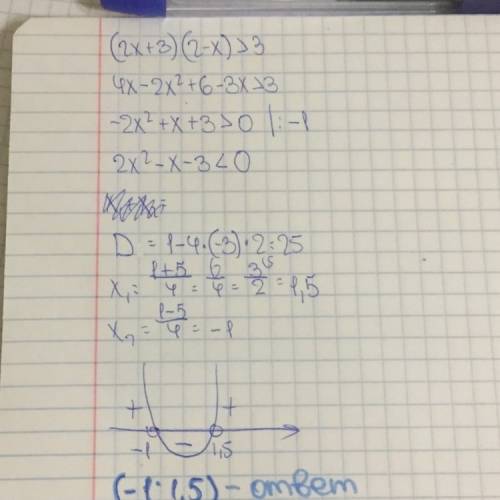 (2x+3)(2-x)>3
4x-2x²+6-3x>3
-2x²+x+3>0 |:-1
2x²-x-3<0
D = 1-4·(-3)·2=25
x₁= (1+5)/4 = 6/4 = 3/2 = 1,5
x₂= (1-5)/4 = -1
+ - +
-1 1,5
(-1; 1,5) - ответ